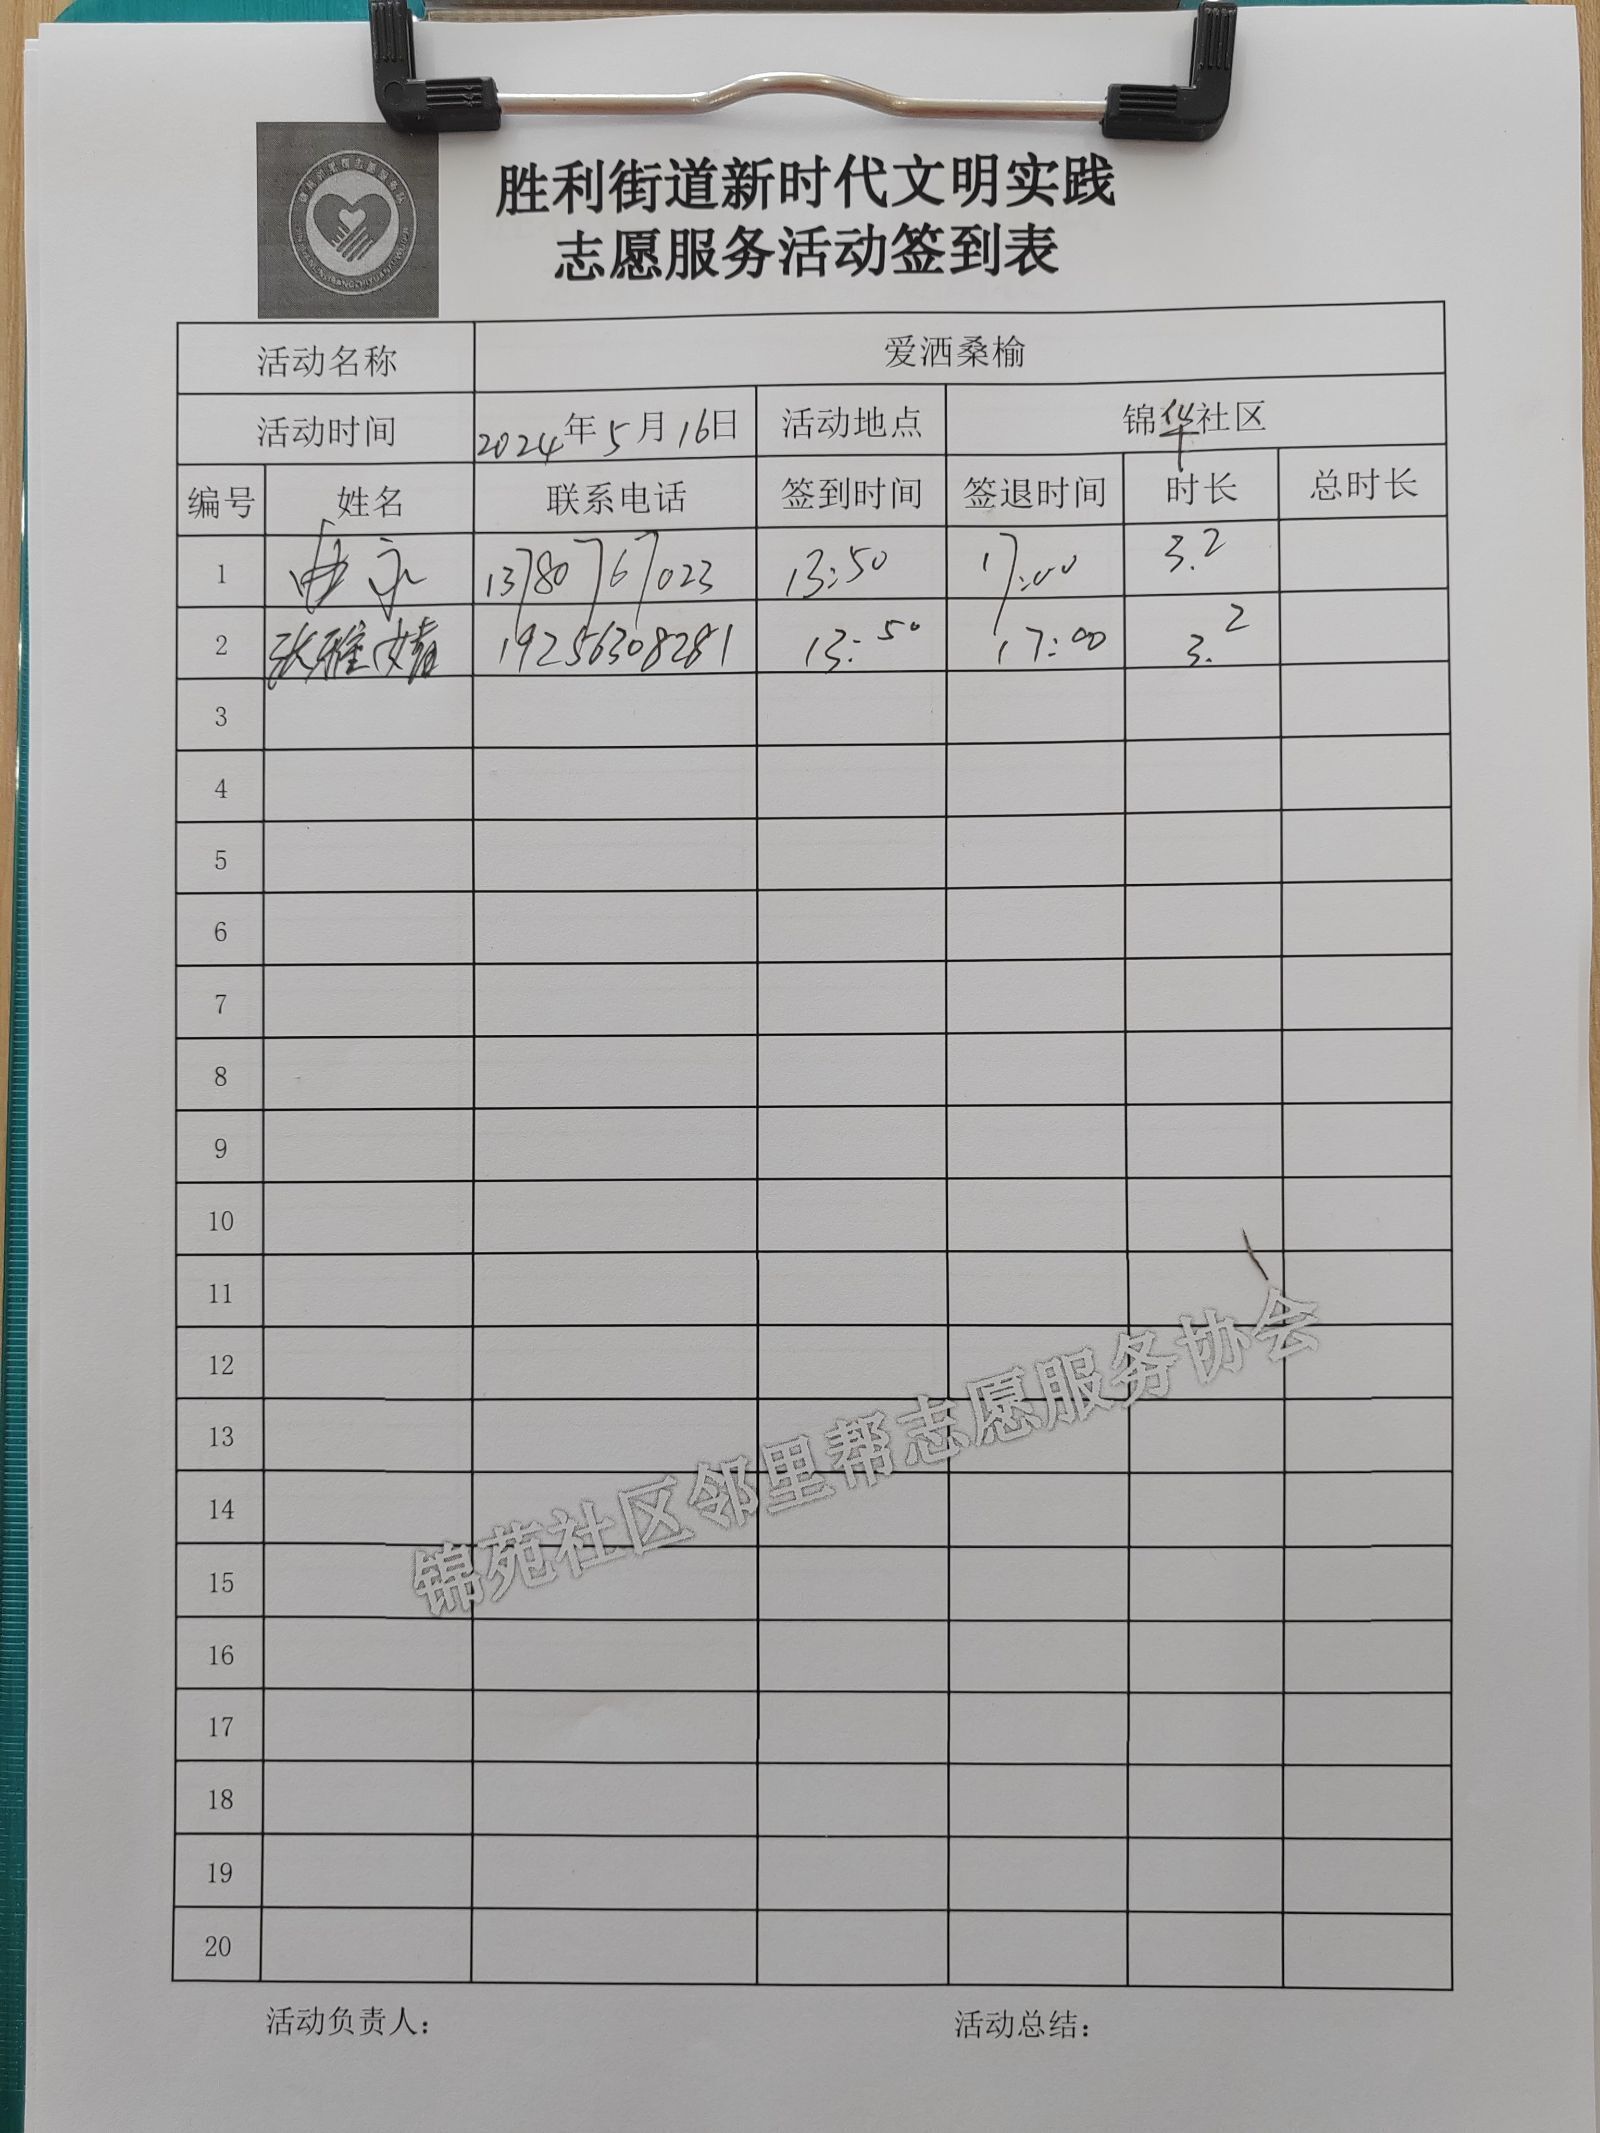 胜利街道新时代文明实践
志愿服务活动签到表
活动名称 爱洒桑榆
活动时间 2024年5月16日 活动地点 锦华社区
编号 姓名 联系电话 签到时间 签退时间 时长 总时长
1 曲永 13780767023 13:50 17:00 3.2
2 张雅婧 19256308281 13:50 17:00 3.2
3
4
5
6
7
8
9
10
11
12
13
14
15
16
17
18
19
20
锦苑社区邻里帮志愿服务协会
活动负责人： 活动总结：